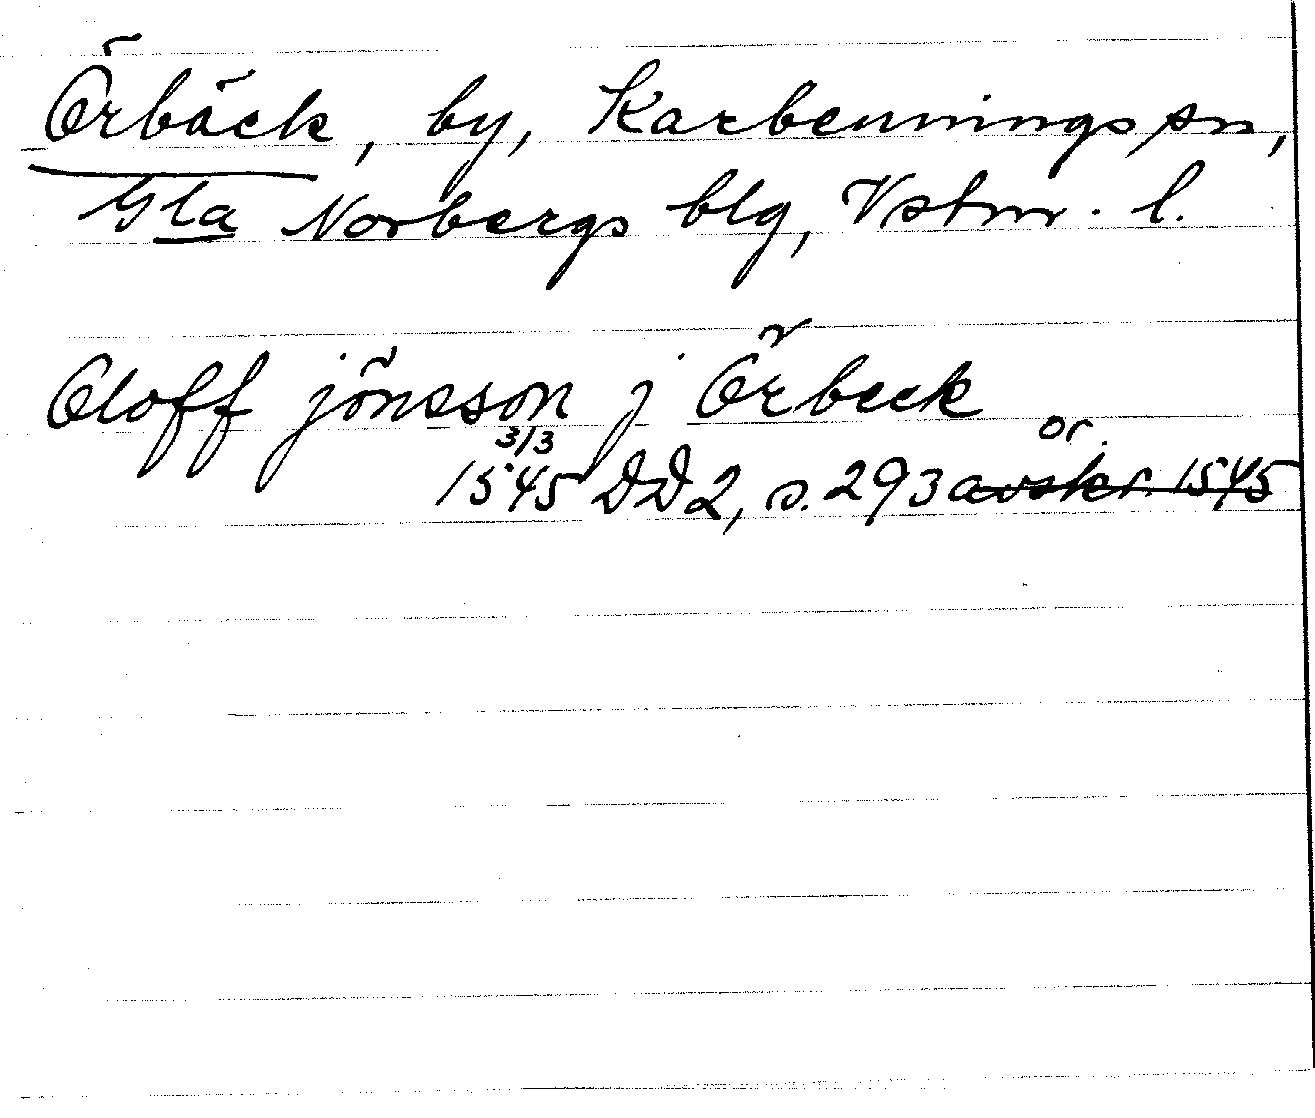 Örbäck, by, Karbennings sn,
Gla Norbergs blg, Vstm. l.
Oloff jönsson j Örbeck
3/3 or.
1545 DD2, s. 293 avskr. 1545